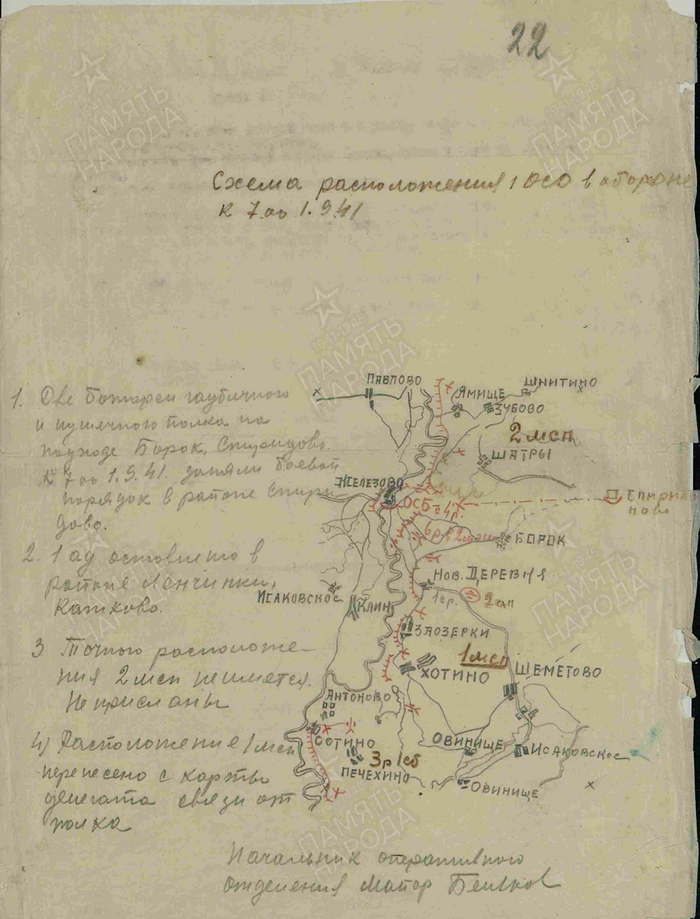 22
Схема расположения 1 ОСО в обороне
к 7.00 1.9.41
1. Две батареи гаубичного
и пушечного полка на
подходе Борок, Спиридово.
К 7.00 1.9.41. заняли боевой
порядок в районе Спири
дово.
2. 1 ад оставлено в
районе
Казаково.
3 Точного расположе-
ния 2 мсп не имеется.
Не присланы
4) Расположение 1 мсп
перенесено с карты
делегата связи от
полка
Начальник оперативного
отделения Майор
Павлово
Ямище
Шнитино
Зубово
2 мсп
Шатры
Железово
ОСБ
Борок
Нов. Деревня
2 ап
Исаковское
Клин
Заозерки
1 мсп
Хотино
Шеметово
Антоново
Сотино
Овинище
Исаковское
3р 1сб
Печехино
Овинище
ПАМЯТЬ
НАРОДА